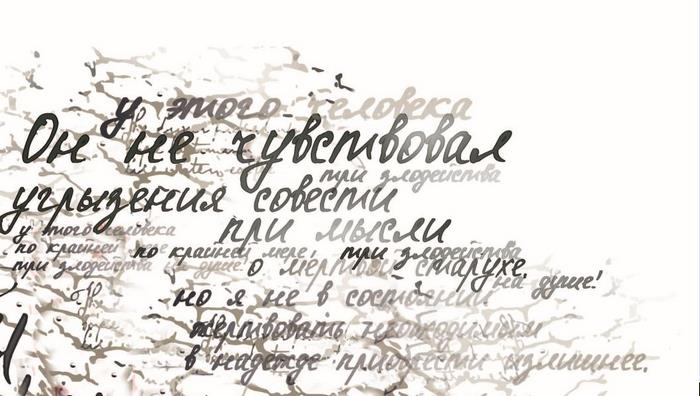 у этого человека
Он не чувствовал
при злодейства
угрызения совести
у этого человека
при мысли
по крайней мере
по крайней мере, при злодейства
при злодейства на душе!
о мёртвой старухе.
на душе!
но я не в состоянии
жертвовать необходимым
в надежде приобрести излишнее.